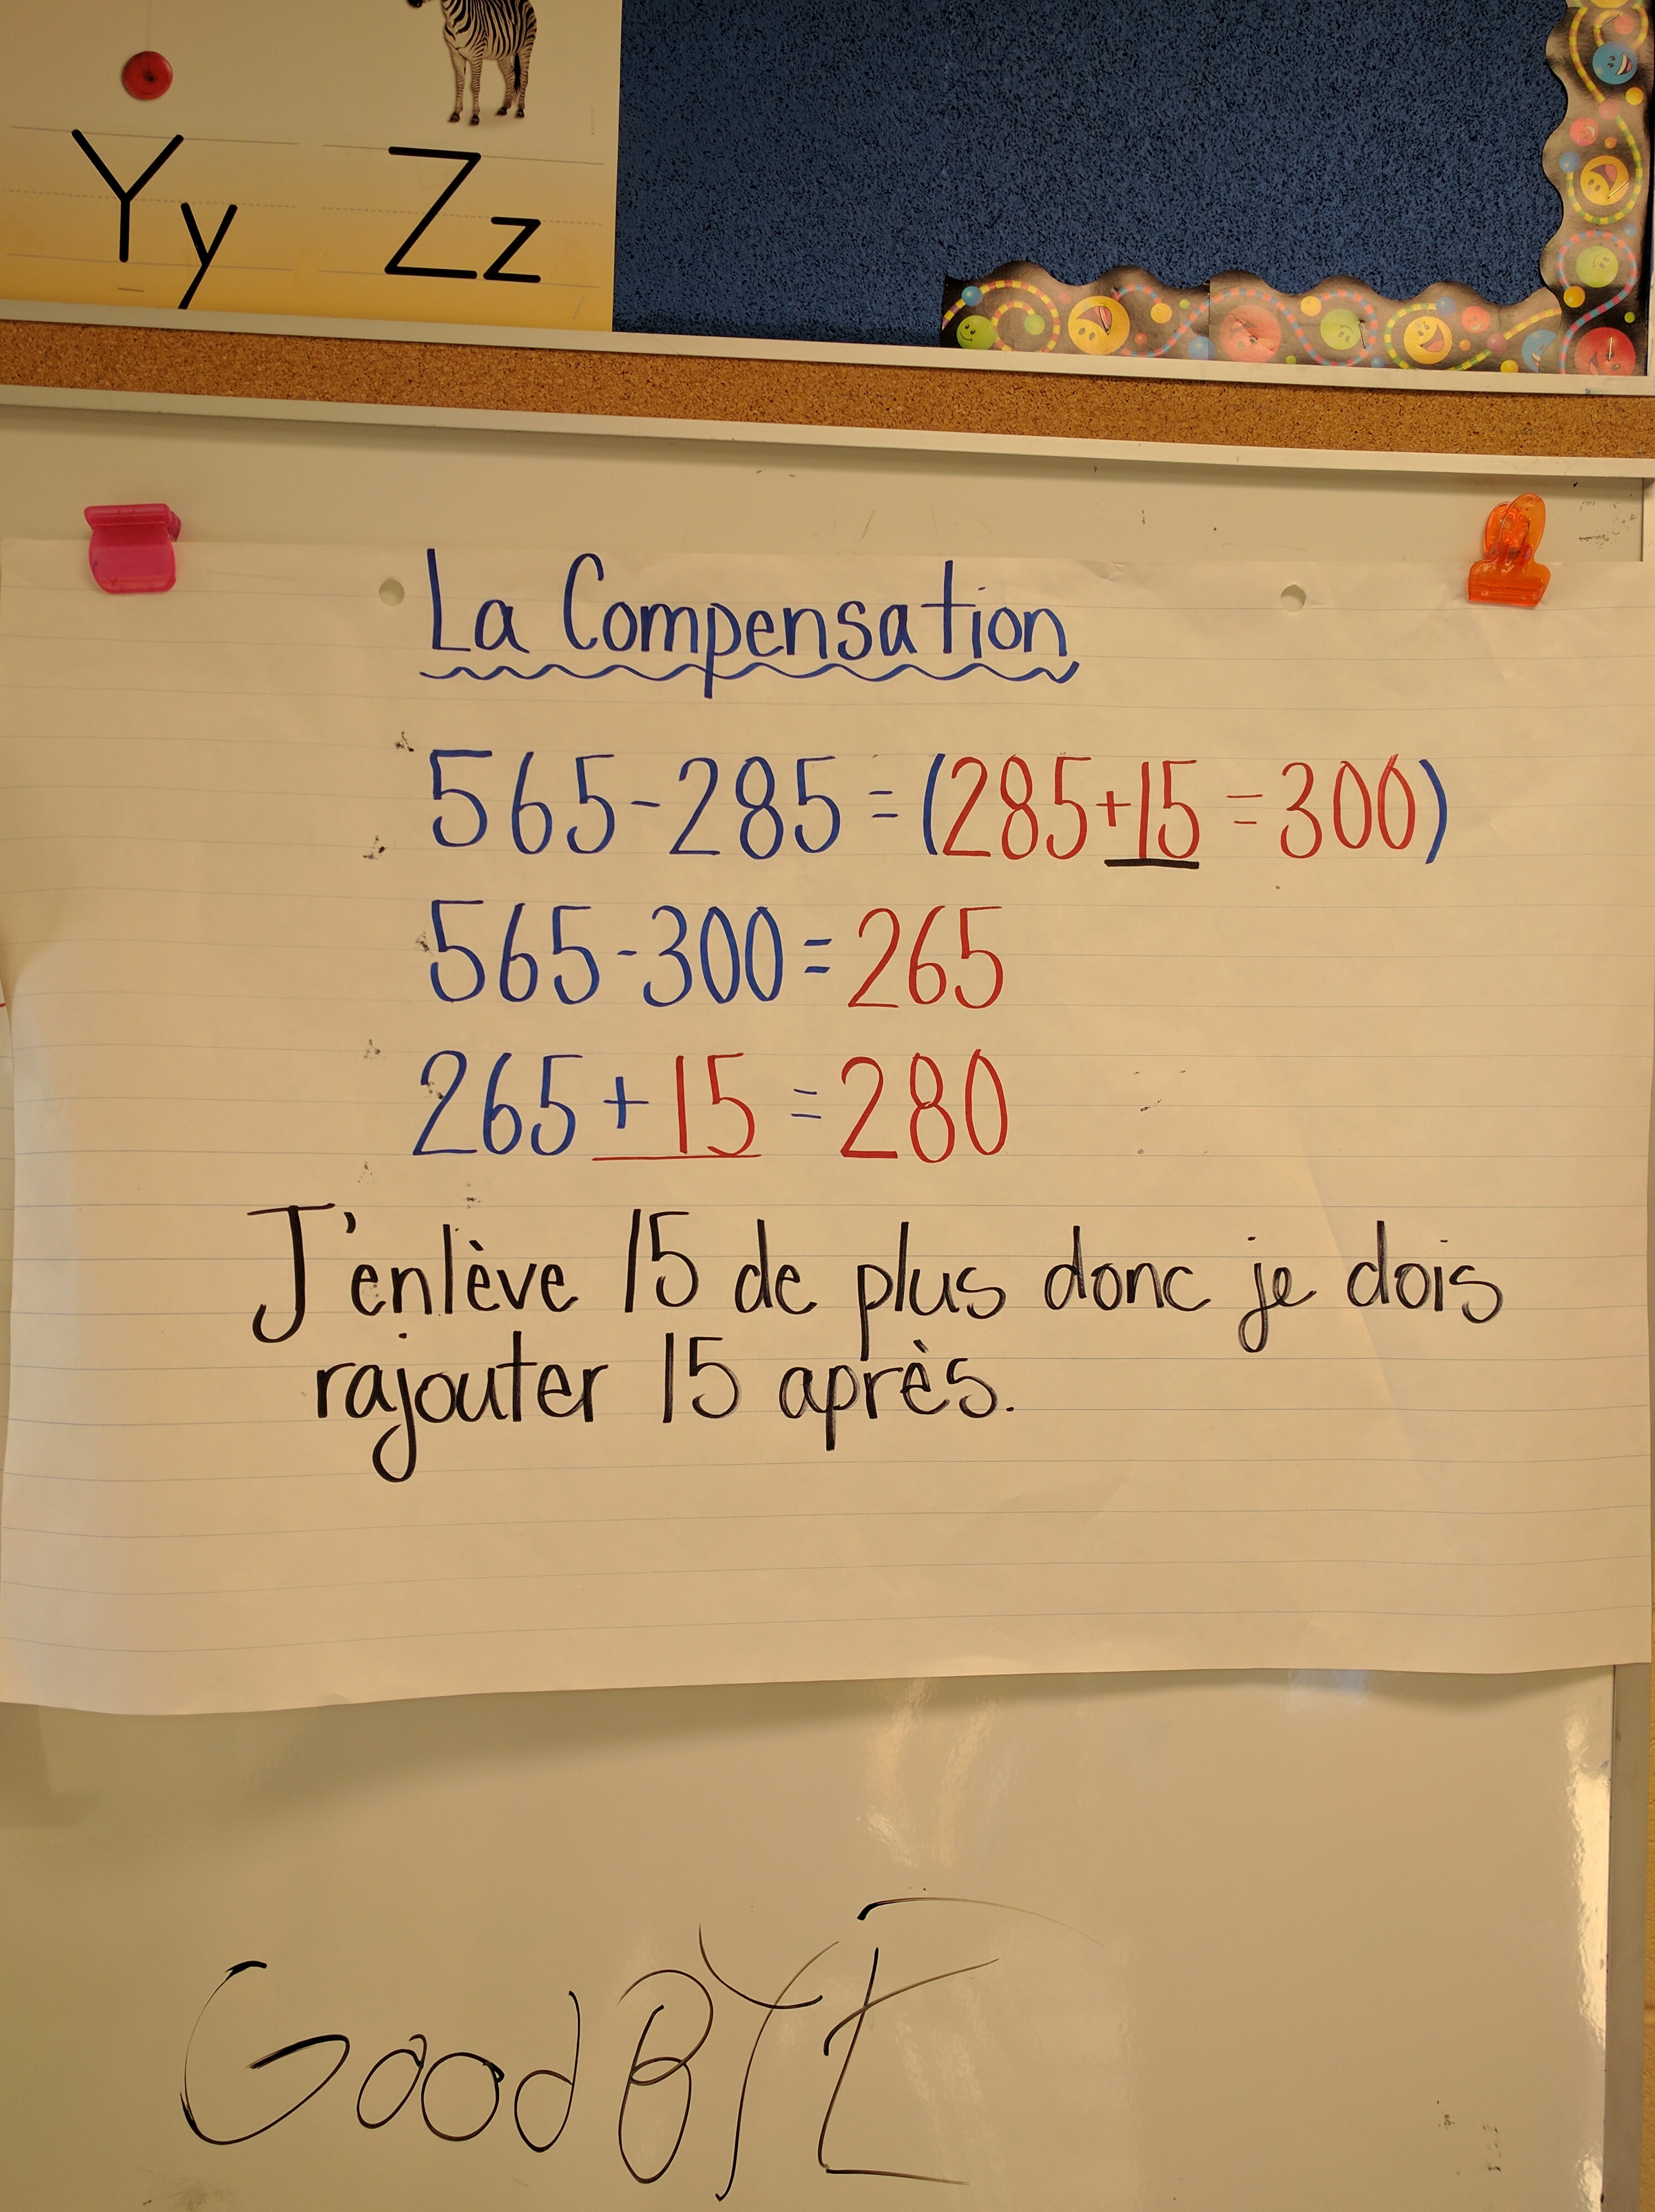 Yy Zz
La Compensation
565-285 = (285+15 = 300)
565-300 = 265
265 + 15 = 280
J'enlève 15 de plus donc je dois
rajouter 15 après.
Good BYE